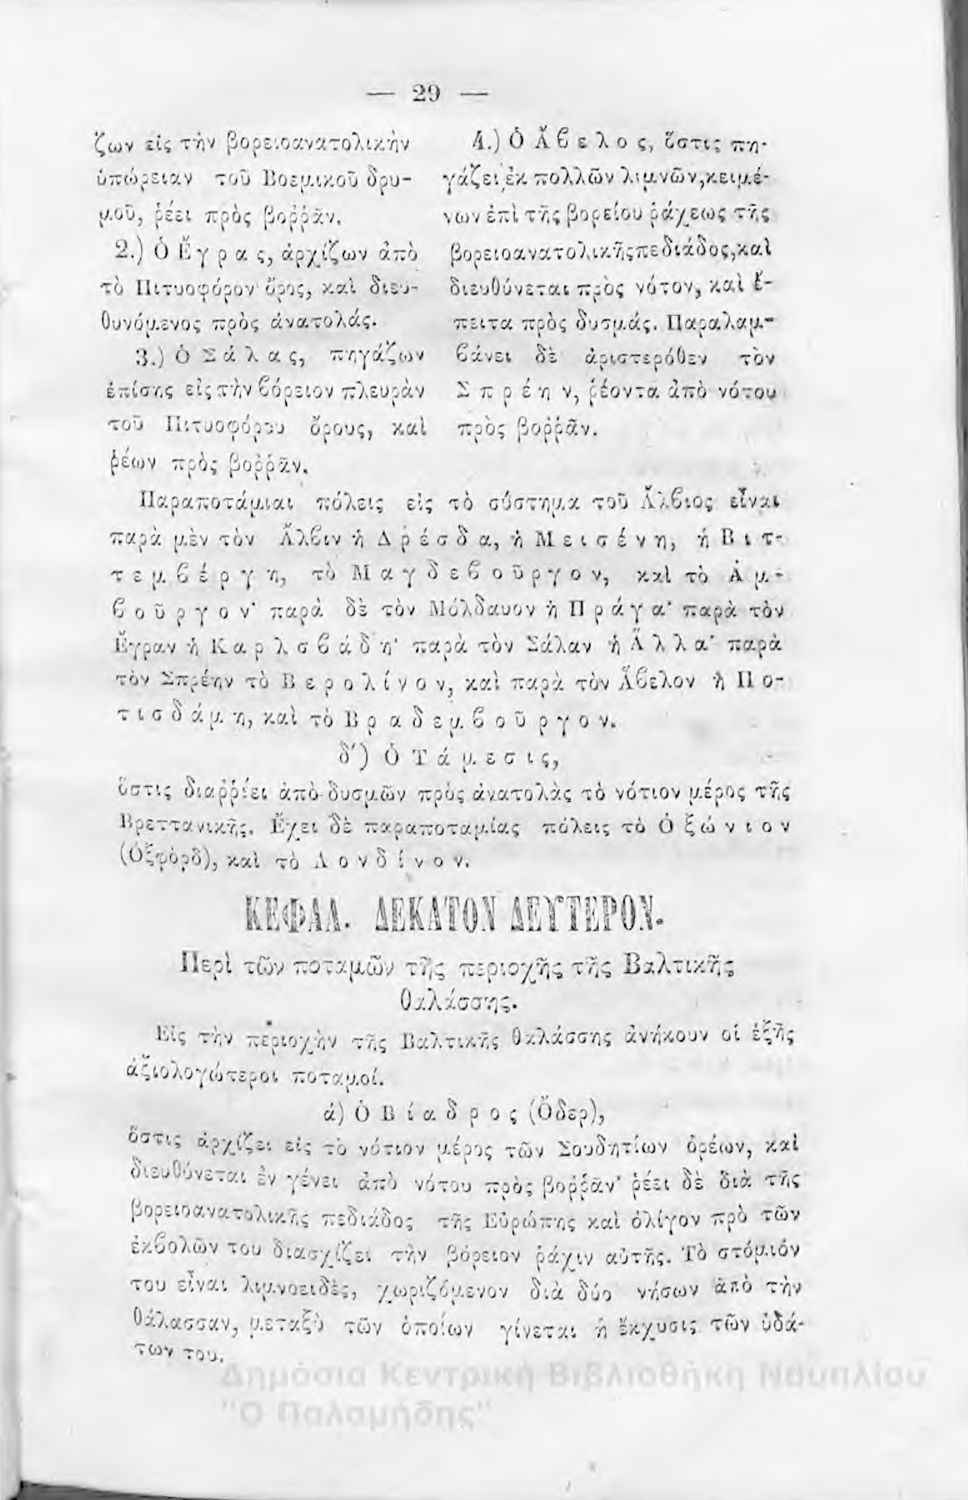 — 29 —
ζων εἰς τὴν βορειοανατολικὴν
ὑπώρειαν τοῦ Βοεμικοῦ δρυ-
μοῦ, ῥέει πρὸς βοῤῥᾶν.
2.) Ὁ Ἔγρας, ἀρχίζων ἀπὸ
τὸ Πιτυοφόρον ὄρος, καὶ διευ-
θυνόμενος πρὸς ἀνατολάς.
3.) Ὁ Σάλας, πηγάζων
ἐπίσης εἰς τὴν βόρειον πλευρὰν
τοῦ Πιτυοφόρου ὄρους, καὶ
ῥέων πρὸς βοῤῥᾶν.
4.) Ὁ Ἄβελος, ὅστις πη-
γάζει ἐκ πολλῶν λιμνῶν, κειμέ-
νων ἐπὶ τῆς βορείου ῥάχεως τῆς
βορειοανατολικῆς πεδιάδος, καὶ
διευθύνεται πρὸς νότον, καὶ ἔ-
πειτα πρὸς δυσμάς. Παραλαμ-
βάνει δὲ ἀριστερόθεν τὸν
Σπρέην, ῥέοντα ἀπὸ νότου
πρὸς βοῤῥᾶν.
Παραποτάμιαι πόλεις εἰς τὸ σύστημα τοῦ Ἄλβιος εἶναι
παρὰ μὲν τὸν Ἄλβιν ἡ Δρέσδα, ἡ Μεισένη, ἡ Βιτ-
τεμβέργη, τὸ Μαγδεβοῦργον, καὶ τὸ Ἀμ-
βοῦργον· παρὰ δὲ τὸν Μόλδαυον ἡ Πράγα· παρὰ τὸν
Ἔγραν ἡ Καρλσβάδη· παρὰ τὸν Σάλαν ἡ Ἄλλα· παρὰ
τὸν Σπρέην τὸ Βερολίνον, καὶ παρὰ τὸν Ἄβελον ἡ Πο-
τισδάμη, καὶ τὸ Βραδεμβοῦργον.
δ') Ὁ Τάμεσις,
ὅστις διαῤῥέει ἀπὸ δυσμῶν πρὸς ἀνατολὰς τὸ νότιον μέρος τῆς
Βρεττανικῆς. Ἔχει δὲ παραποταμίας πόλεις τὸ Ὀξώνιον
(Ὀξφόρδ), καὶ τὸ Λονδίνον.
ΚΕΦΑΛ. ΔΕΚΑΤΟΝ ΔΕΥΤΕΡΟΝ.
Περὶ τῶν ποταμῶν τῆς περιοχῆς τῆς Βαλτικῆς
Θαλάσσης.
Εἰς τὴν περιοχὴν τῆς Βαλτικῆς θαλάσσης ἀνήκουν οἱ ἑξῆς
ἀξιολογώτεροι ποταμοί.
ά) Ὁ Βίαδρος (Ὄδερ),
ὅστις ἀρχίζει εἰς τὸ νότιον μέρος τῶν Σουδητίων ὀρέων, καὶ
διευθύνεται ἐν γένει ἀπὸ νότου πρὸς βοῤῥᾶν· ῥέει δὲ διὰ τῆς
βορειοανατολικῆς πεδιάδος τῆς Εὐρώπης καὶ ὀλίγον πρὸ τῶν
ἐκβολῶν του διασχίζει τὴν βόρειον ῥάχιν αὐτῆς. Τὸ στόμιόν
του εἶναι λιμνοειδὲς, χωριζόμενον διὰ δύο νήσων ἀπὸ τὴν
θάλασσαν, μεταξὺ τῶν ὁποίων γίνεται ἡ ἔκχυσις τῶν ὑδά-
των του.
Δημόσια Κεντρική Βιβλιοθήκη Ναυπλίου
"Ο Παλαμήδης"